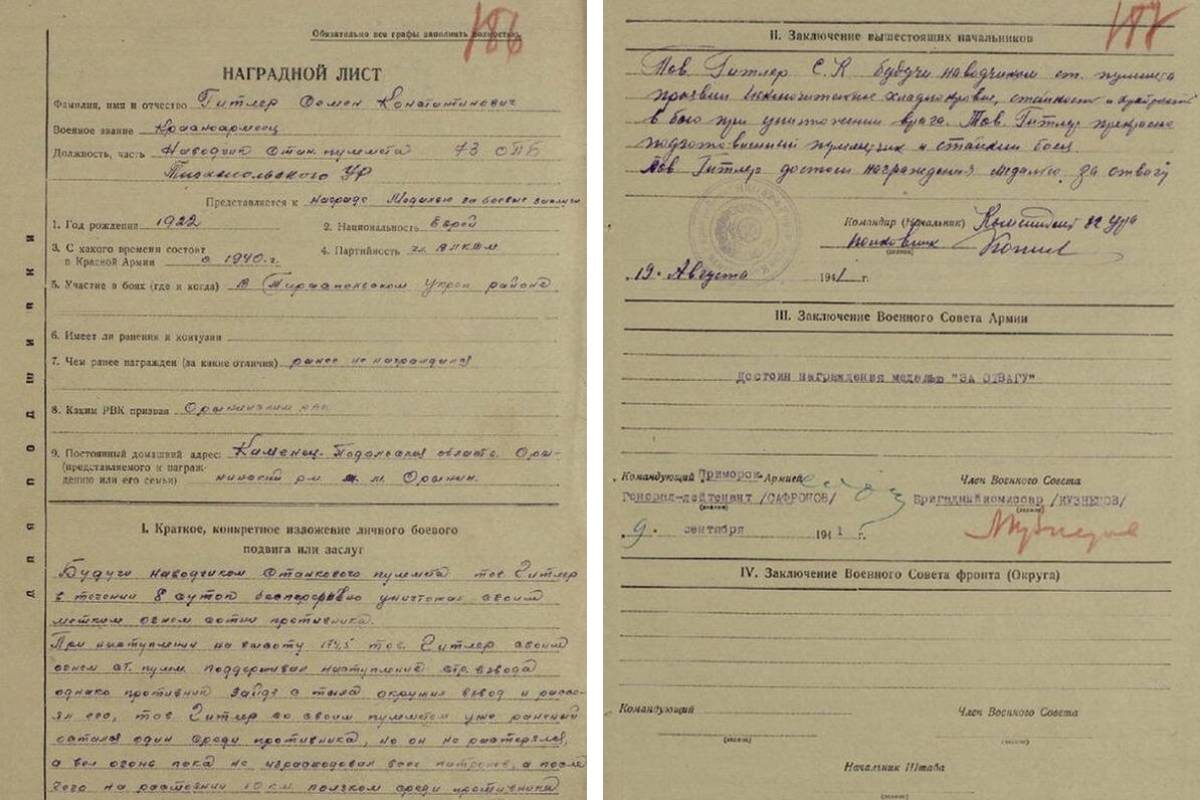 186
Обязательно все графы заполнить полностью.
НАГРАДНОЙ ЛИСТ
Фамилия, имя и отчество Гитлер Семен Константинович
Военное звание Красноармеец
Должность, часть Наводчик Стан. пулемета 73 ОПБ
Тираспольского УР
Представляется к награде Медалью за боевые заслуги
1. Год рождения 1922 2. Национальность Еврей
3. С какого времени состоит
в Красной Армии с 1940 г. 4. Партийность чл. ВЛКСМ
5. Участие в боях (где и когда) В Тираспольском Укреп районе
6. Имеет ли ранения и контузии
7. Чем ранее награжден (за какие отличия) ранее не награждался
8. Каким РВК призван Орынинским рвк
9. Постоянный домашний адрес: Каменец-Подольская область Оры-
(представляемого к награж-
дению или его семьи) нинский р-н м. Орынин.
I. Краткое, конкретное изложение личного боевого
подвига или заслуг
Будучи наводчиком Станкового пулемета тов Гитлер
в течении 8 суток беспрерывно уничтожал своим
метким огнем сотни противника.
При наступлении на высоту 174,5 тов. Гитлер своим
огнем ст. пулем. поддерживал наступление стр. взвода
однако противник зайдя с тыла окружил взвод и рассе-
ял его, тов Гитлер со своим пулеметом уже раненый
остался один среди противника, но он не растерялся,
а вел огонь пока не израсходовал всех патронов, а после
чего на расстоянии 10 км ползком среди противника
для подшивки
187
II. Заключение вышестоящих начальников
Тов. Гитлер С. К будучи наводчиком ст. пулемета
проявил исключительное хладнокровие, стойкость и храбрость
в бою при уничтожении врага. Тов. Гитлер прекрасно
подготовленный пулеметчик и стойкий боец.
Тов Гитлер достоин награждения медалью за отвагу
Командир (Начальник) Комендант 82 Ура
полковник
(подпись)
19 Августа 1941 г.
III. Заключение Военного Совета Армии
достоин награждения медалью "ЗА ОТВАГУ"
Командующий Приморск. Армией
Генерал-лейтенант /САФРОНОВ/
(подпись)
Член Военного Совета
Бригадный комиссар /КУЗНЕЦОВ/
(подпись)
9 сентября 1941 г.
IV. Заключение Военного Совета фронта (Округа)
Командующий
(подпись)
Член Военного Совета
(подпись)
Начальник Штаба
(подпись)